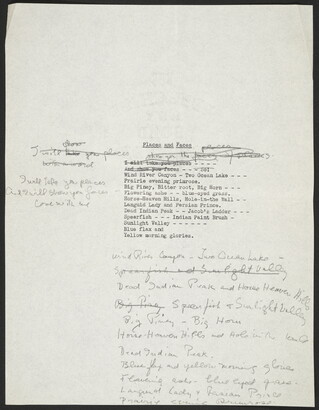 Places and Faces
show
I will take you places
I will take you places
And show you faces - - - - oo!
I will take you places
And I will show you faces
Come with me
Wind River Canyon - Two Ocean Lake - - -
Prairie evening primrose.
Big Piney, Bitter root, Big Horn - - -
Flowering ashe - - blue-eyed grass.
Horse-Heaven Hills, Hole-in-the Wall - -
Languid Lady and Persian Prince.
Dead Indian Peak - - Jacob's Ladder - - -
Spearfish - - - Indian Paint Brush -
Sunlight Valley - - - - - - -
Blue flax and
Yellow morning glories.
Wind River Canyon - Two Ocean Lake -
Spearfish and Sunlight Valley
Dead Indian Peak and Horse Heaven Hills
Big Piney Spearfish & Sunlight Valley
Big Piney - Big Horn
Horse-Heaven Hills and Hole in the Wall
Dead Indian Peak.
Blue flax and yellow morning glories
Flowering ashe - blue eyed grass -
Languid Lady & Persian Prince
Prairie evening primrose